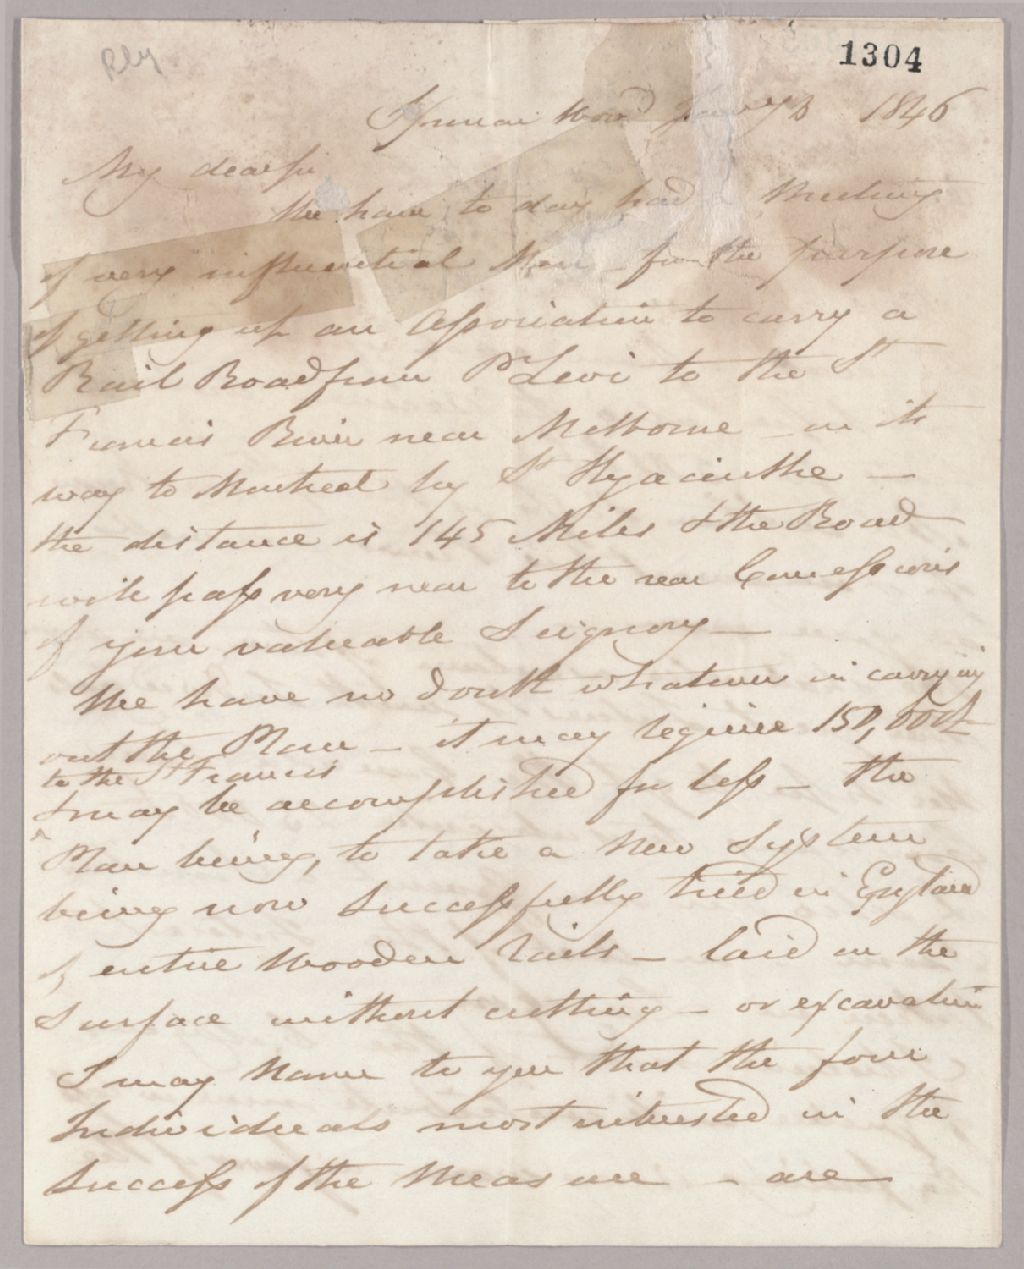 Rly
1304
Spencer Wood Jany 3 1846
My dear Sir
We have to day had a Meeting
of very influential Men - for the purpose
of getting up an Association to carry a
Rail Road from Pt Levi to the St
Francis River near Melborne - on its
way to Montreal by St Hyacinthe -
the distance is 145 Miles & the Road
will pass very near to the rear Concessions
of your valuable Seignory -
We have no doubt whatever in carrying
out the Plan - it may require 150,000£
to the St Francis
& may be accomplished for less - the
Plan being, to take a New System
being now successfully tried in England
of entire Wooden Rails - laid on the
Surface without cutting - or excavation
I may Name to you that the four
Individuals most interested in the
success of the Measure - are